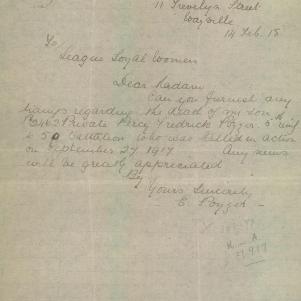 11 Trevelyn Street
Wayville
14 Feb. 18
To
League Loyal Women
Dear Madam
Can you furnish any
regarding the death of my son
Private Percy Fredrick Poyzer 5th Unit
to 50 Battalion who was killed in action
on September 27 1917. Any news
will be greatly appreciated
By
Yours Sincerely
E. Poyzer